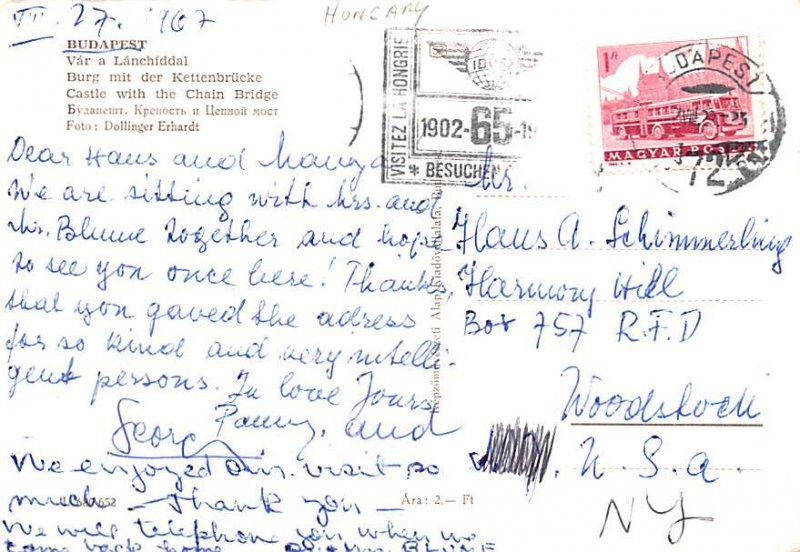 VII. 27. 1967
HUNGARY
BUDAPEST
Vár a Lánchíddal
Burg mit der Kettenbrücke
Castle with the Chain Bridge
Будапешт. Крепость и Цепной мост
Foto: Dollinger Erhardt
VISITEZ LA HONGRIE
1902-65-1
* BESUCHEN
1 Ft
MAGYAR POSTA
BUDAPEST
72
Dear Hans and Manya
We are sitting with Mrs. and
Mr. Blume together and hope
to see you once here! Thanks,
that you gaved the adress
for so kind and very intelli-
gent persons. In love Yours
Panny, and
Georg
We enjoyed our visit so
much - Thank you -
We will telephone you when we
come back home
BLUME
Ára: 2,— Ft
Mr.
Hans A. Schimmerling
Harmony Hill
Box 757 R.F.D
Woodstock
U.S.a.
NY